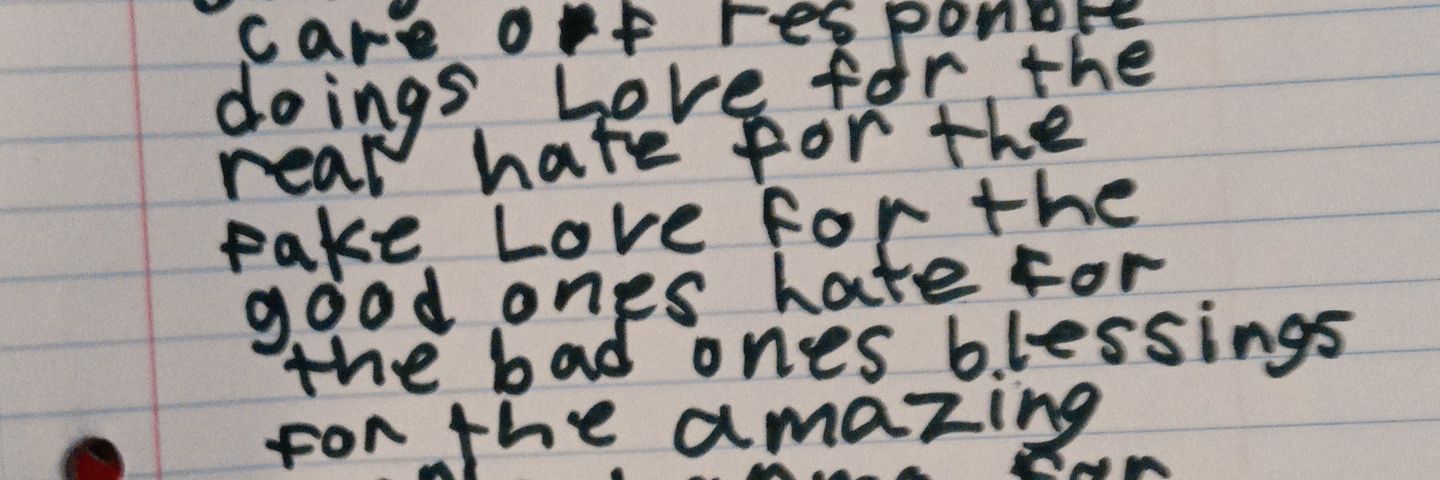 care of responble
doings Love for the
real hate for the
fake Love for the
good ones hate for
the bad ones blessings
for the amazing
for